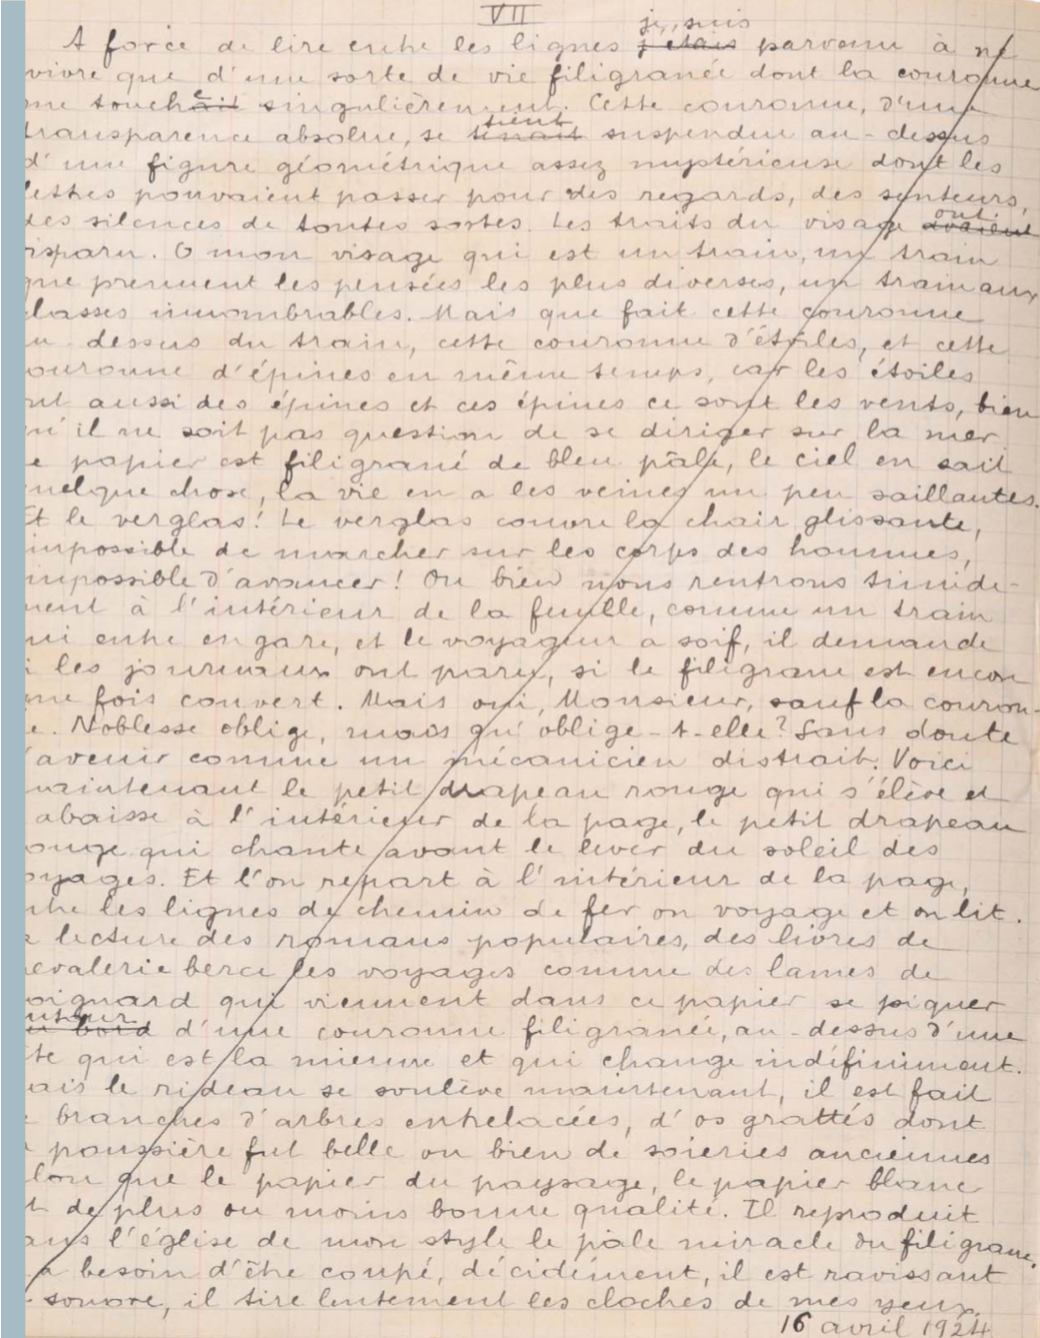 VII
je suis
A force de lire entre les lignes j'étais parvenu à ne
vivre que d'une sorte de vie filigranée dont la couronne
me touchait singulièrement. Cette couronne, d'une
tient
transparence absolue, se tenait suspendue au-dessus
d'une figure géométrique assez mystérieuse dont les
lettres pouvaient passer pour des regards, des senteurs,
ont
des silences de toutes sortes. Les traits du visage avaient
isparu. O mon visage qui est un train, un train
que prennent les pensées les plus diverses, un train aux
classes innombrables. Mais que fait cette couronne
u dessus du train, cette couronne d'étoiles, et cette
ouronne d'épines en même temps, car les étoiles
nt aussi des épines et ces épines ce sont les vents, bien
u'il ne soit pas question de se diriger sur la mer
e papier est filigrané de bleu pâle, le ciel en sait
uelque chose, la vie en a les veines un peu saillantes.
Et le verglas! Le verglas couvre la chair glissante,
impossible de marcher sur les corps des hommes,
impossible d'avancer! Ou bien nous rentrons timide-
ment à l'intérieur de la feuille, comme un train
ui entre en gare, et le voyageur a soif, il demande
i les journaux ont paru, si le filigrane est encore
une fois couvert. Mais oui, Monsieur, sauf la couron-
e. Noblesse oblige, mais qu'oblige-t-elle? Sans doute
'avenir comme un mécanicien distrait. Voici
maintenant le petit drapeau rouge qui s'élève et
abaisse à l'intérieur de la page, le petit drapeau
ouge qui chante avant le lever du soleil des
oyages. Et l'on repart à l'intérieur de la page,
ntre les lignes de chemin de fer on voyage et on lit.
a lecture des romans populaires, des livres de
hevalerie berce les voyages comme des lames de
oignard qui viennent dans ce papier se piquer
utour
u bord d'une couronne filigranée, au-dessus d'une
te qui est la mienne et qui change indéfiniment.
ais le rideau se soulève maintenant, il est fait
e branches d'arbres entrelacées, d'os grattés dont
a poussière fut belle ou bien de soieries anciennes
lon que le papier du paysage, le papier blanc
t de plus ou moins bonne qualité. Il reproduit
ans l'église de mon style le pâle miracle du filigrane.
a besoin d'être coupé, décidément, il est ravissant
sonore, il tire lentement les cloches de mes yeux.
16 avril 1924